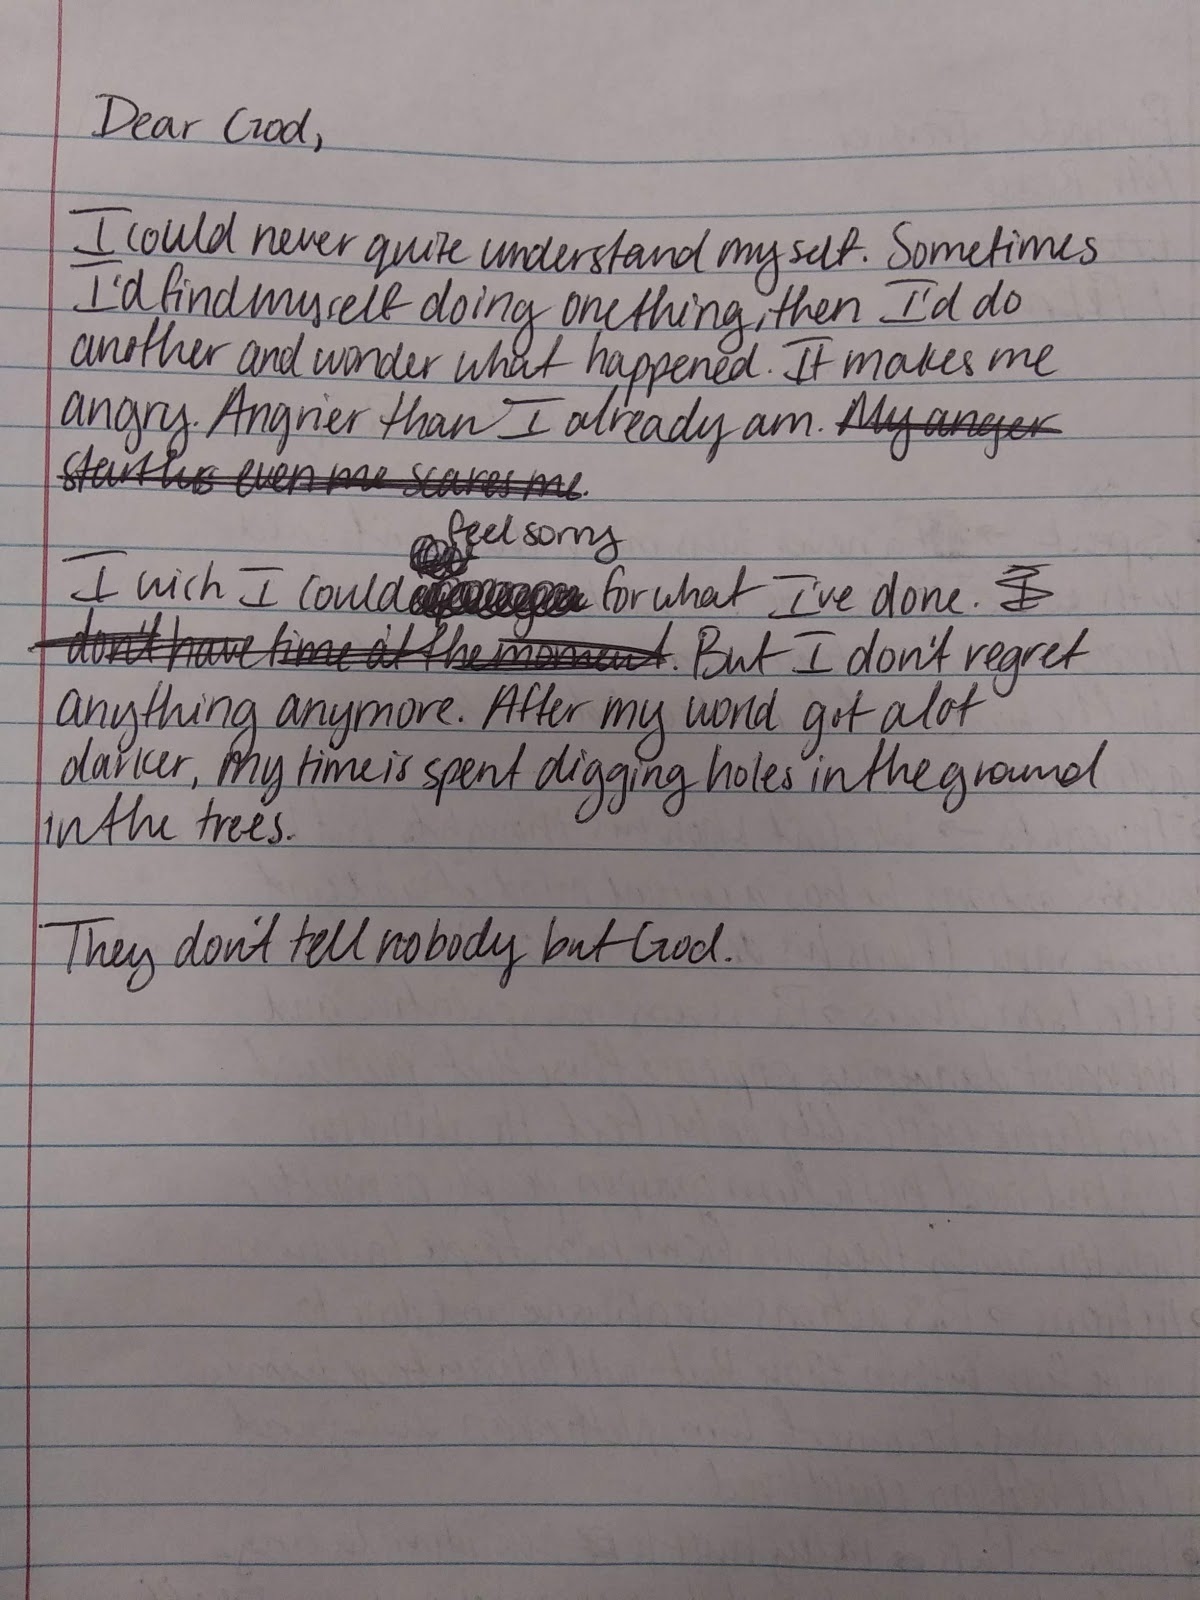 Dear God,
I could never quite understand myself. Sometimes
I'd find myself doing one thing, then I'd do
another and wonder what happened. It makes me
angry. Angrier than I already am. My anger
even me scares me.
feel sorry
I wich I could for what I've done. I
don't have time at the moment. But I don't regret
anything anymore. After my world got a lot
darker, my time is spent digging holes in the ground
in the trees.
They don't tell nobody but God.